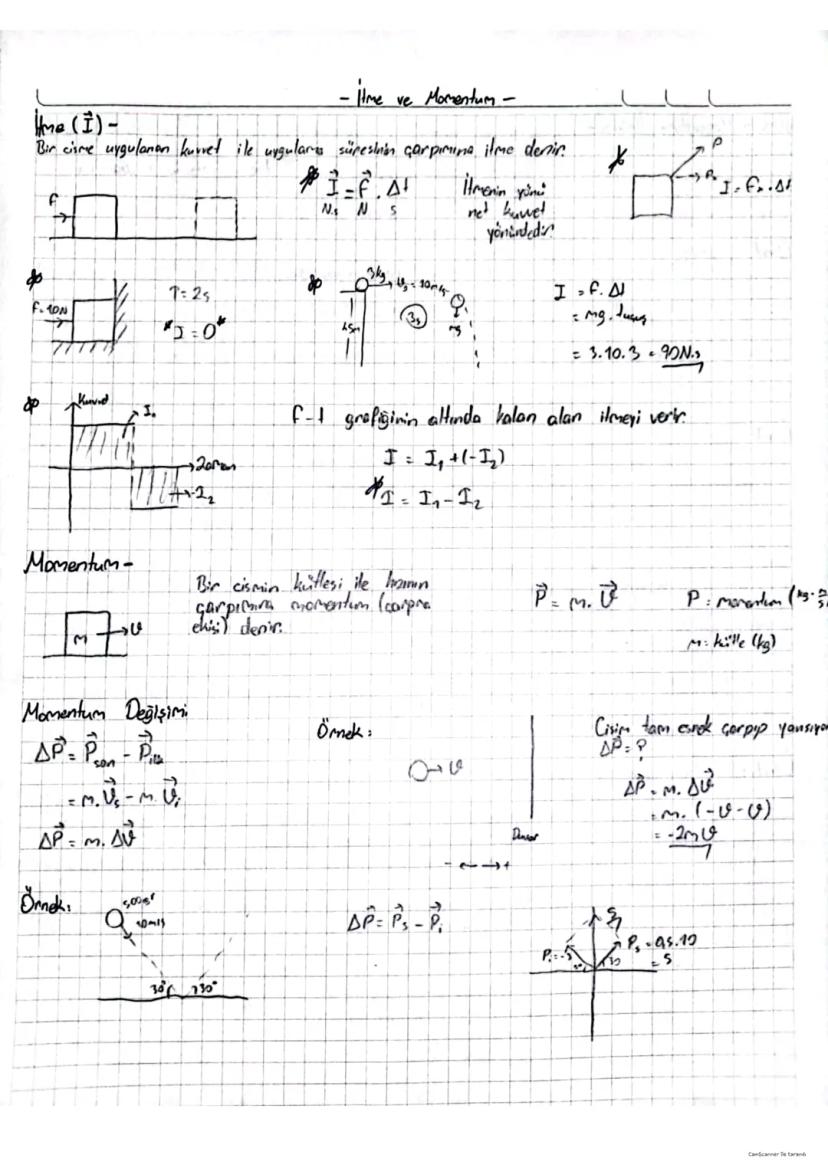 - İtme ve Momentum -
İtme (I) -
Bir cisme uygulanan kuvvet ile uygulama süresinin çarpımına itme denir.
F
I = F . Δt
N.s N s
İtmenin yönü
net kuvvet
yönündedir.
I = Fx . Δt
F=10N
T=2s
*I=0*
3kg
45m
3s
mg
I = F. Δt
= mg. tuçuş
= 3.10.3 = 90N.s
Kuvvet
Zaman
-I2
F-t grafiğinin altında kalan alan itmeyi verir.
I = I1 + (-I2)
I = I1 - I2
Momentum -
m
ϑ
Bir cismin kütlesi ile hızının
çarpımına momentum (çarpma
etkisi) denir.
P = m. ϑ
P: momentum (kg. m/s
m: kütle (kg)
Momentum Değişimi
ΔP = Pson - Pilk
= m.ϑs - m.ϑi
ΔP = m. Δϑ
Örnek:
ϑ
Duvar
- +
Cisim tam esnek çarpıp yansıyor
ΔP = ?
ΔP = m. Δϑ
= m. (-ϑ - ϑ)
= -2mϑ
Örnek:
10m/s
30° 30°
ΔP = Ps - Pi
Ps = 0,5.10
= 5
CamScanner ile tarandı